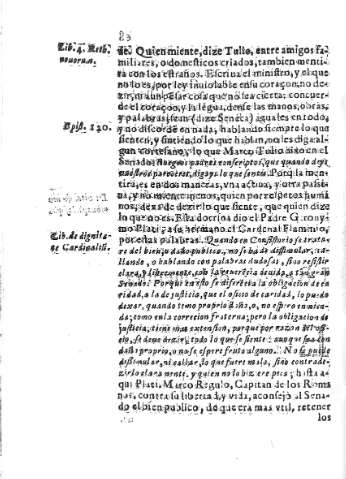 Lib. 4. Reth.
de. Quien miente, dize Tulio, entre amigos fa-
miliares, o domesticos criados, tambien menti-
ra con los estraños. Escriua el ministro, y el que
no lo es, por ley inuiolable en su coraçon, no de-
zir, ni aun pelar cosa que no sea cierta; concuer-
de el coraçon, y la légua, dense las manos, obras,
y palabras: sean (dize Seneca) iguales en todo,
Epist. 120.
y no discordé en nada, hablando siempre lo que
sienten, y sintiendo lo que hablan, no les diga al-
gun cortesano, lo que Marco Tulio dixo en el
Senado: padres conscriptos, que quando
vuestros digays lo que sentis. Porq̃ la men-
tira es en dos maneras, vna actiua, y otra passi-
ua, y no menos mienten, quien por respetos huma
nos, dexa de dezir lo que siente, que quien dize
lo que no es. Esta doctrina dio el Padre Gerony-
mo Plati, a su hermano el Cardenal Flaminio,
Lib. de dignita-
te Cardinalis.
por estas palabras. Quando en Consistorio se trata-
re del bien, o daño publico, no se ha de dissimular, ca-
llando, o hablando con palabras dudosas, sino resistir
clara, y libremente, con la reuerencia deuida, a tan gran
Senado: Porque en esto se diferécia la obligacion de ca-
ridad, a la de justicia, que el oficio de caridad, lo puedo
dexar, quando temo proprio daño, o, no espero enmie-
da; como en la correcion fraterna; pero la obligacion de
justicia, tiene mas extension, porque por razon del offi-
cio, se deue dezir todo lo que se siente: aunque sea con
daño proprio, o no se espere fruto alguno. No se puede
dissimular, ni callar, lo que fuere malo, sino contrade-
zirlo claramente, y quien no lo hiziere peca; hasta a-
qui Plati. Marco Regulo, Capitan de los Roma
nos, contra su libertad, y vida, aconsejò al Sena-
do el bien publico, de que era mas vtil, retener
los